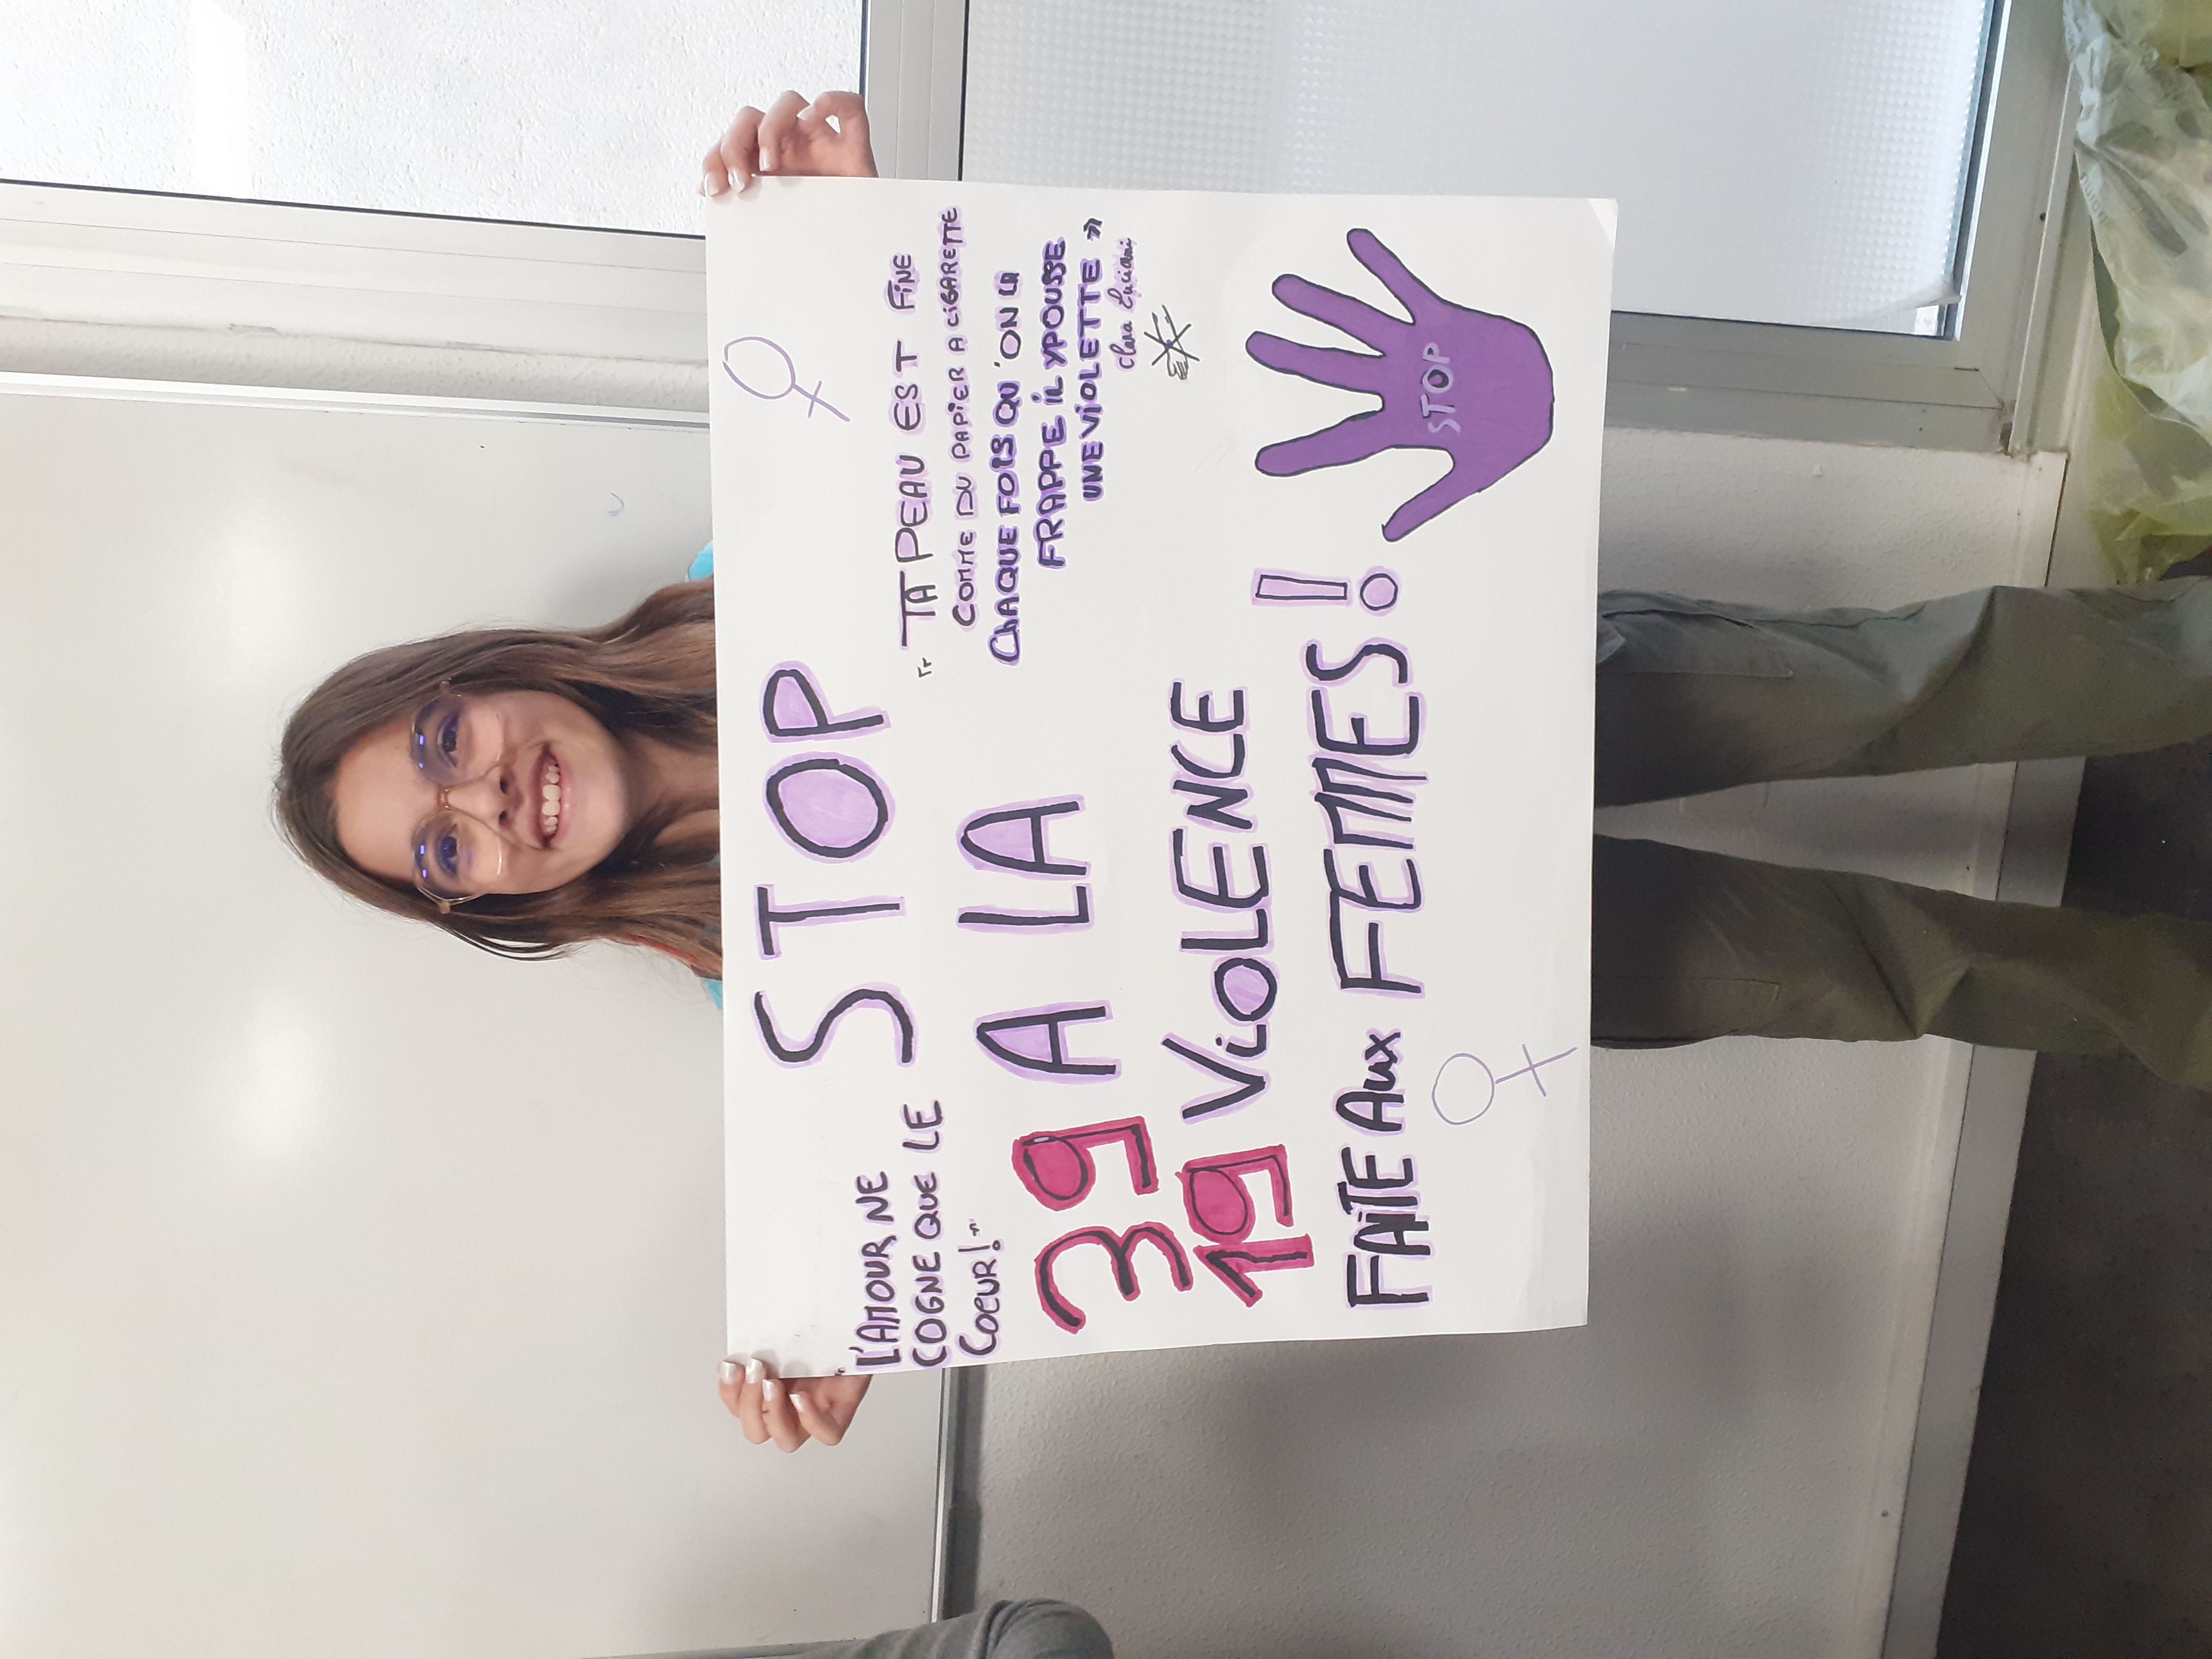 STOP
A LA
VIOLENCE
FAITE AUX FEMMES !
"L'AMOUR NE
COGNE QUE LE
COEUR!"
39
19
"TA PEAU EST FINE
COMME DU PAPIER A CIGARETTE
CHAQUE FOIS QU'ON LA
FRAPPE IL Y POUSSE
UNE VIOLETTE »
Clara Luciani
STOP